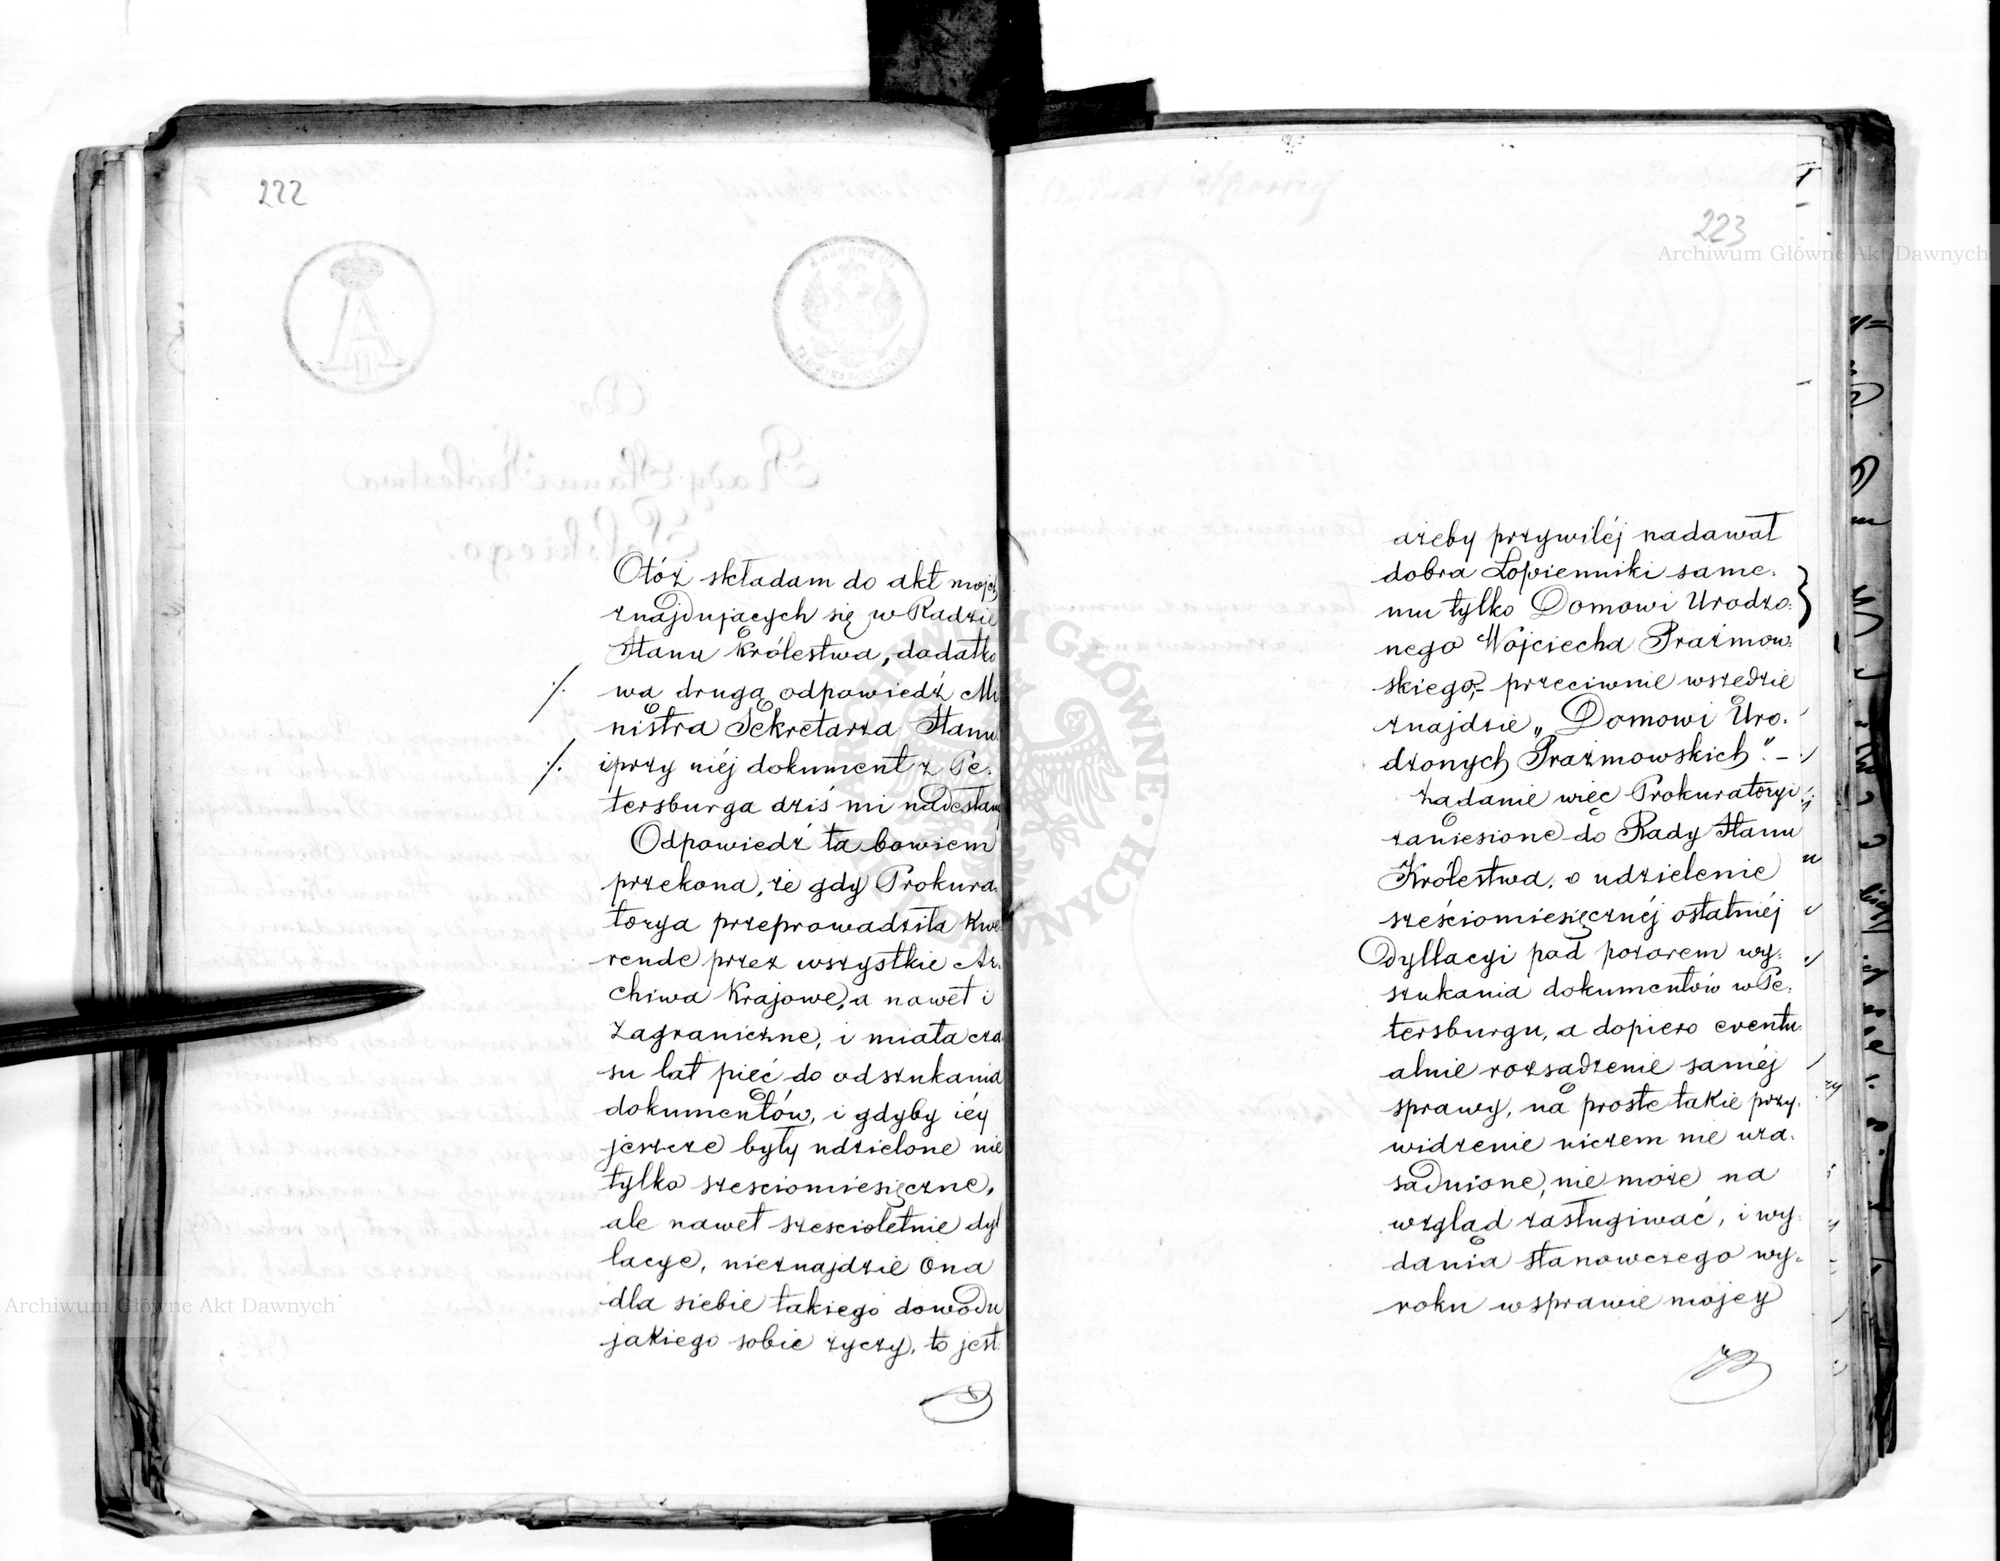 222
Otóż składam do akt moich
znajdujących się w Radzie
Stanu Królestwa, dodatko
wą drugą odpowiedź Mi
nistra Sekretarza Stanu
i przy niéj dokument z Pe-
tersburga dziś mi nadesłany
Odpowiedź ta bowiem
przekona, że gdy Prokura-
torya przeprowadziła kwe
rendę przez wszystkie Ar-
chiwa Krajowe, a nawet i
Zagraniczne, i miała cza
su lat pięć do odszukania
dokumentów, i gdyby iéy
jeszcze były udzielone nie
tylko sześciomiesięczne,
ale nawet sześcioletnie dyl
lacye, nieznajdzie Ona
dla siebie takiego dowodu
jakiego sobie życzy, to jest
223
ażeby przywiléj nadawał
dobra Łopienniki same-
mu tylko Domowi Urodzo-
nego Wojciecha Prażmow-
skiego,- przeciwnie wszędzie
znajdzie „Domowi Uro-
dzonych Prażmowskich". -
Żądanie więc Prokuratoryi
zaniesione do Rady Stanu
Królestwa, o udzielenie
sześciomiesięcznéj ostatniéj
Dyllacyi pod pozorem wy-
szukania dokumentów w Pe-
tersburgu, a dopiero eventu-
alnie rozsądzenie saméj
sprawy, na proste takie przy-
widzenie niczem nie uza-
sadnione, nie może na
wzgląd zasługiwać, i wy-
dania stanowczego wy-
roku w sprawie mojey
Archiwum Główne Akt Dawnych
Archiwum Główne Akt Dawnych
ARCHIWUM GŁÓWNE AKT DAWNYCH